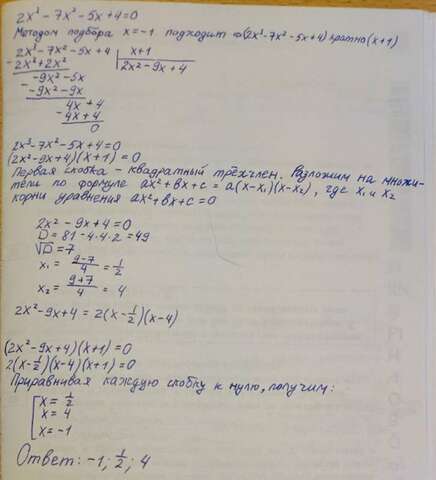 2x³-7x²-5x+4=0
Методом подбора x=-1 подходит ⇒(2x³-7x²-5x+4) кратно (x+1)
2x³-7x²-5x+4 | x+1
-2x³+2x² 2x²-9x+4
-9x²-5x
- -9x²-9x
4x+4
-4x+4
0
2x³-7x²-5x+4=0
(2x²-9x+4)(x+1)=0
Первая скобка - квадратный трёхчлен. Разложим на множи-
тели по формуле ax²+bx+c=a(x-x₁)(x-x₂), где x₁ и x₂
корни уравнения ax²+bx+c=0
2x²-9x+4=0
D=81-4·4·2=49
√D=7
x₁= (9-7)/4 = 1/2
x₂= (9+7)/4 = 4
2x²-9x+4=2(x-1/2)(x-4)
(2x²-9x+4)(x+1)=0
2(x-1/2)(x-4)(x+1)=0
Приравнивая каждую скобку к нулю, получим:
[x=1/2
x=4
x=-1
Ответ: -1; 1/2; 4